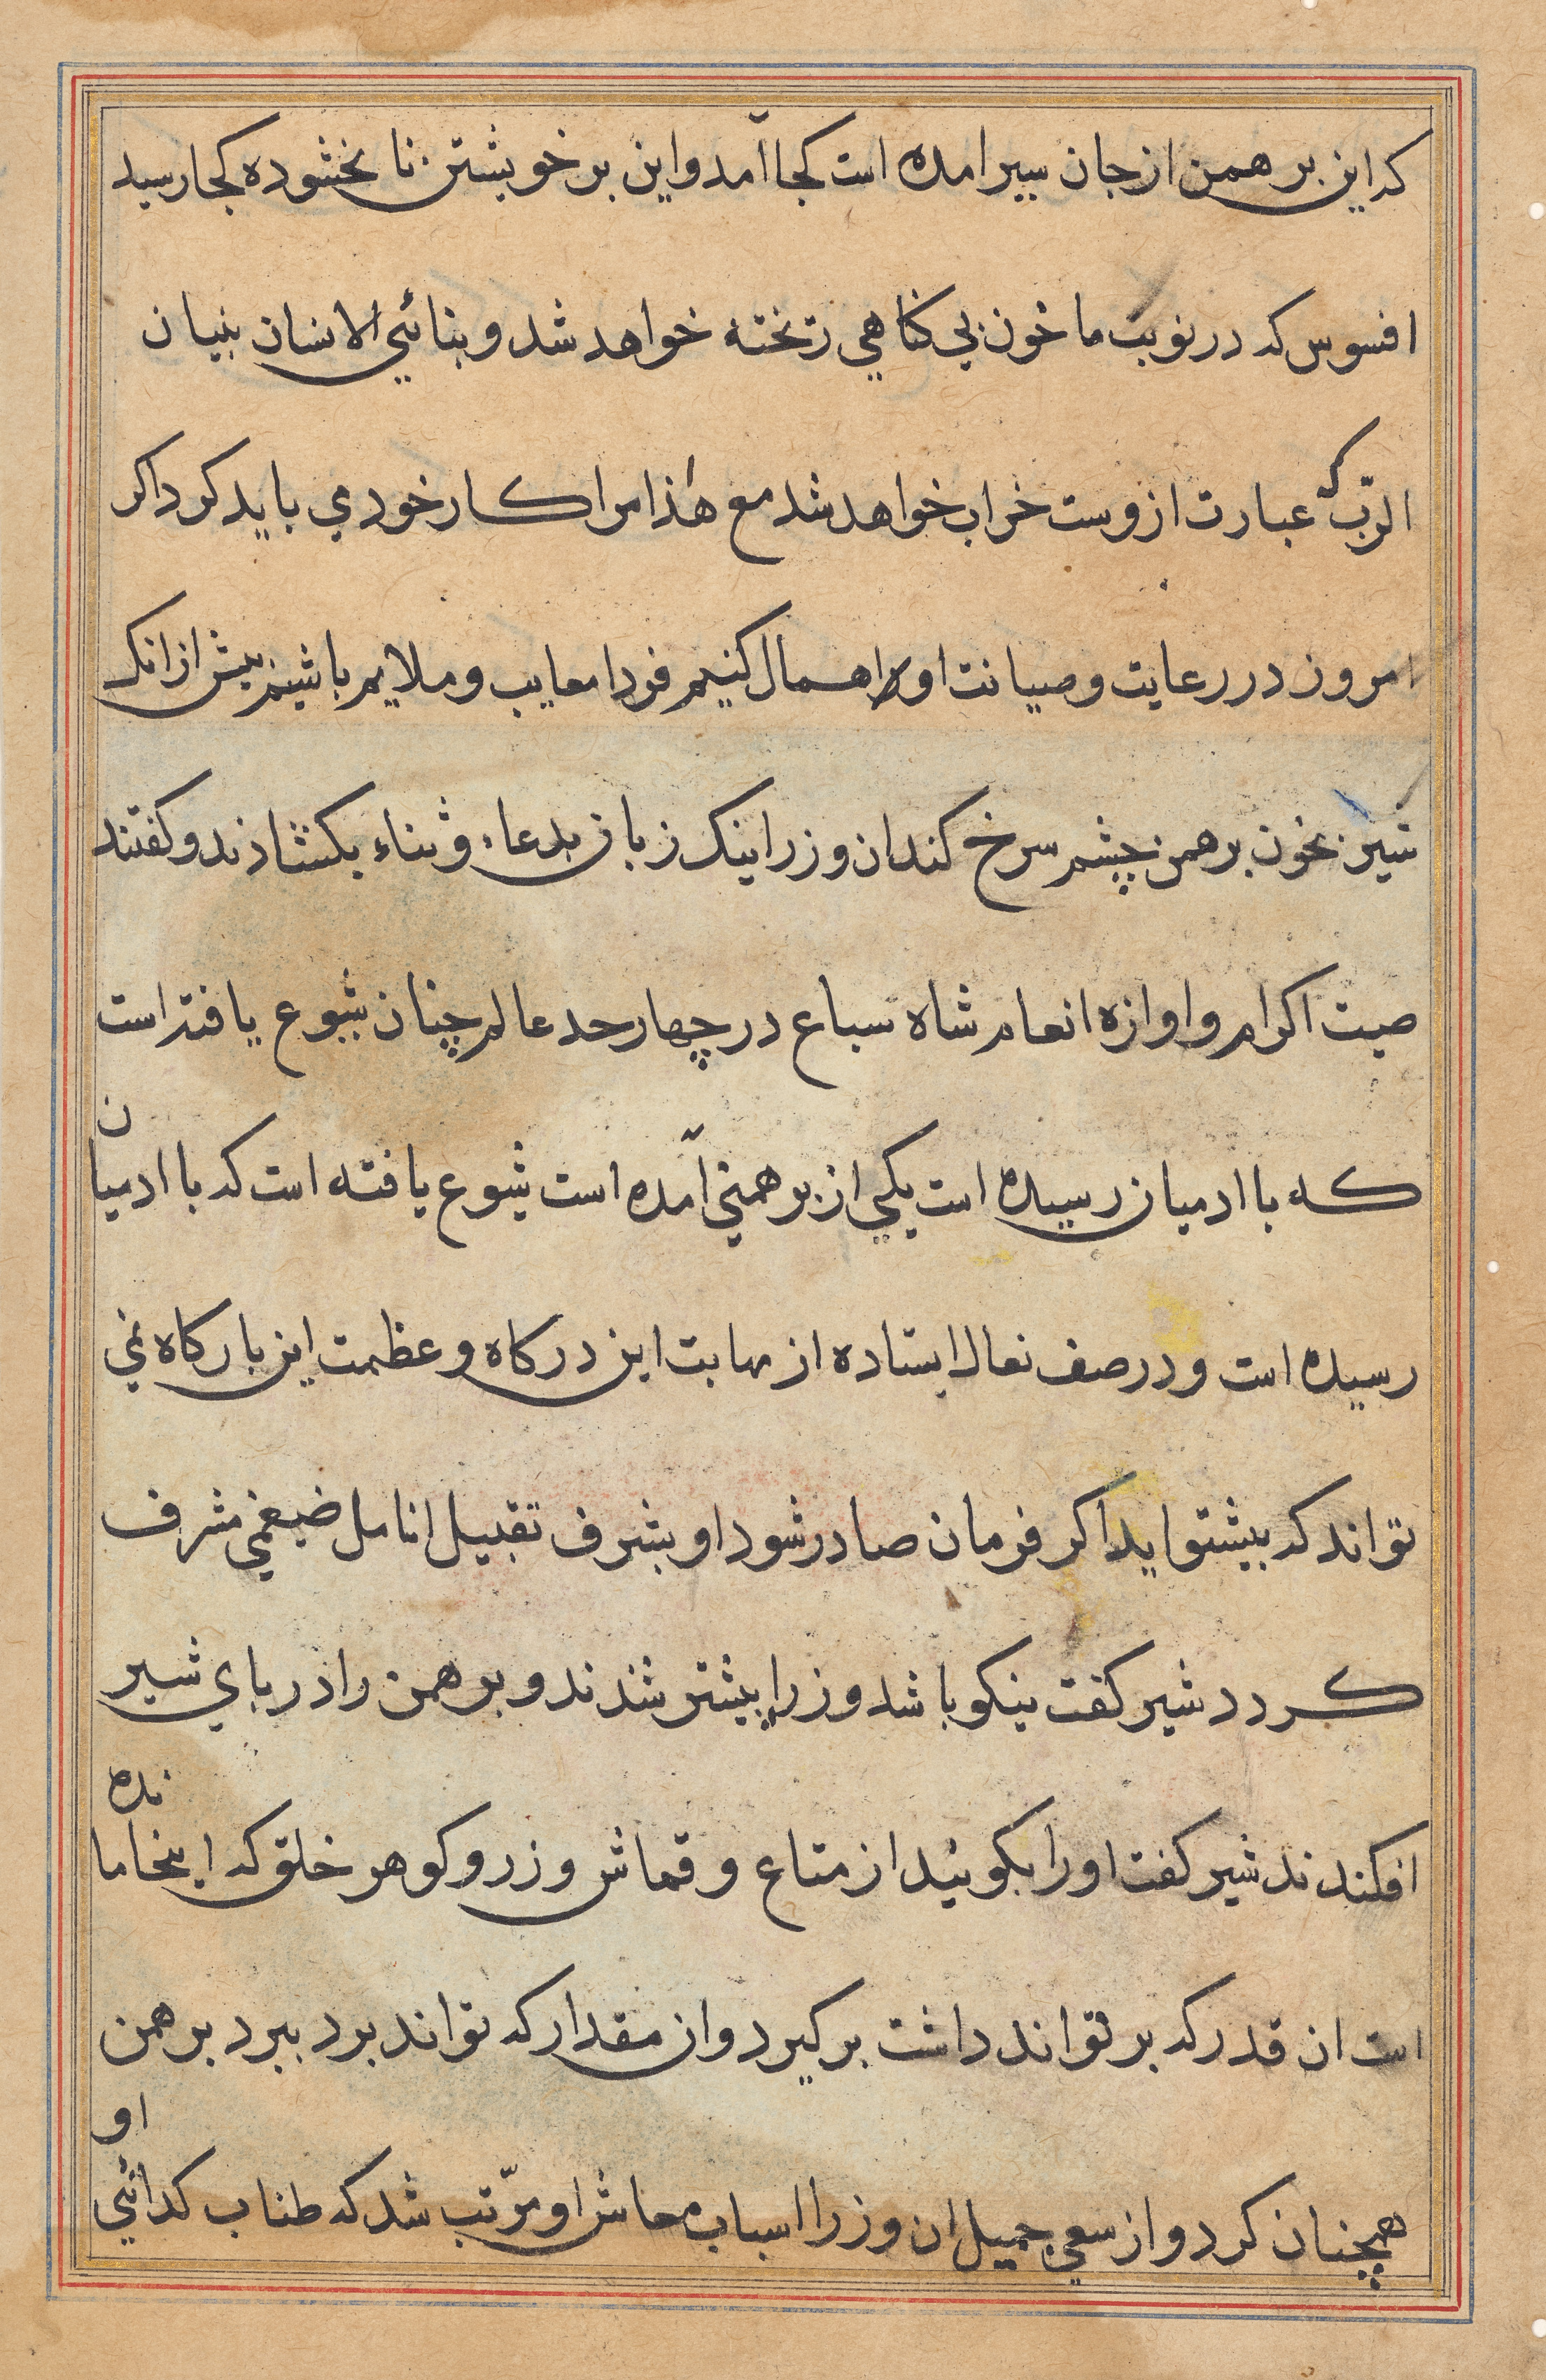 که این برهمن از جان سیر امده است کجا آمد و این بر خویشتن نا بخشوده کجا رسید
افسوس که در نوبت ما خون بی کناهی ریخته خواهد شد و بنائی الانسان بنیان
الرّب که عبارت ازوست خراب خواهد شد مع هٰذا مرا کار خودي باید کرد اکر
امروز در رعایت و صیانت او اهمال کنیم فردا معایب و ملایم باشیم پیش از انک
شیر بخون برهمن چشم سرخ کند ان وزرا نیک زبان بدعاء و ثناء بکشادند و کفتند
صیت اکرام و اوازه انعام شاه سباع در چهار حد عالم چنان شیوع یافته است
که با ادمیان رسیده است یکی از برهمنی آمده است شیوع یافته است که با ادمیان
رسیده است و در صف نعال ایستاده از مهابت این درکاه و عظمت این بارکاه نمی
تواند که پیشتر اید اکر فرمان صادر شود او بشرف تقبیل انامل ضیغمی مشرف
کردد شیر کفت نیکو باشد وزرا پیشتر شدند و برهمن را در پاي شیر
افکندند شیر کفت او را بکوئید از متاع و قماش و زر و کوهر خلق که اینجا مانده
است ان قدر که بر تواند داشت بر کیرد و ان مقدار که تواند برد ببرد برهمن
همچنان کرد و از سعی جمیل ان وزرا اسباب معاش او مرّتب شد که طناب کدائی او